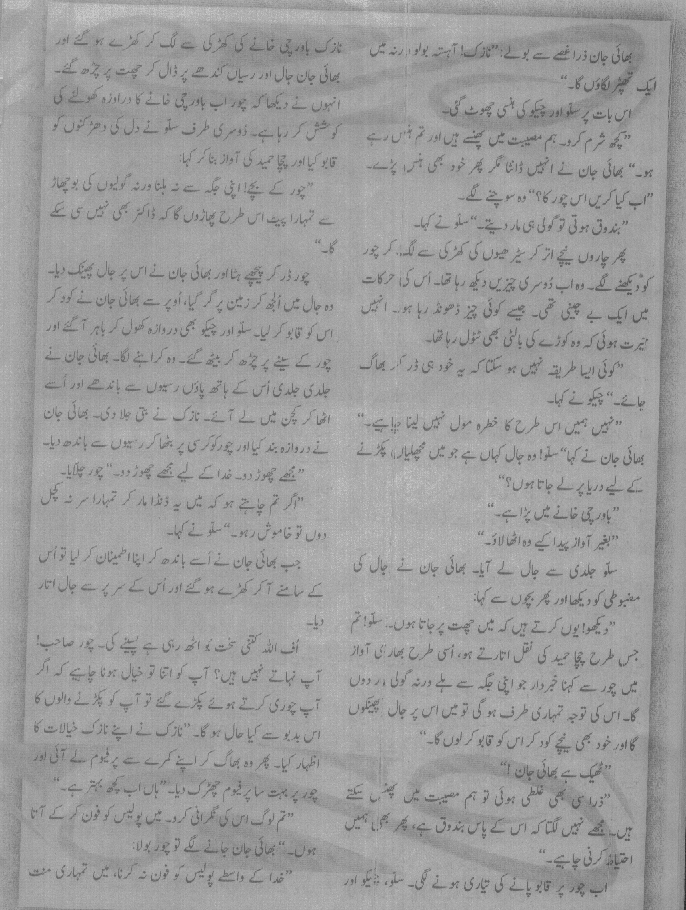 بھائی جان ذرا غصے سے بولے: ”نازک! آہستہ بولو ورنہ میں
ایک تھپڑ لگاؤں گا۔“
اس بات پر سلو اور چیکو کی ہنسی چھوٹ گئی۔
”کچھ شرم کرو۔ ہم مصیبت میں پھنسے ہیں اور تم ہنس رہے
ہو۔“ بھائی جان نے انہیں ڈانٹا مگر پھر خود بھی ہنس پڑے۔
”اب کیا کریں اس چور کا؟“ وہ سوچنے لگے۔
”بندوق ہوتی تو گولی ہی مار دیتے۔“ سلو نے کہا۔
پھر چاروں نیچے اتر کر سیڑھیوں کی کھڑکی سے لگ کر چور
کو دیکھنے لگے۔ وہ اب دُوسری چیزیں دیکھ رہا تھا۔ اُس کی حرکات
میں ایک بے چینی تھی۔ جیسے کوئی چیز ڈھونڈ رہا ہو۔ انہیں
حیرت ہوئی کہ وہ کوڑے کی بالٹی بھی ٹٹول رہا تھا۔
”کوئی ایسا طریقہ نہیں ہو سکتا کہ یہ خود ہی ڈر کر بھاگ
جائے۔“ چیکو نے کہا۔
”نہیں ہمیں اس طرح کا خطرہ مول نہیں لینا چاہیے۔“
بھائی جان نے کہا ”سلو! وہ جال کہاں ہے جو میں مچھلیاں پکڑنے
کے لیے دریا پر لے جاتا ہوں؟“
”باورچی خانے میں پڑا ہے۔“
”بغیر آواز پیدا کیے وہ اٹھا لاؤ۔“
سلو جلدی سے جال لے آیا۔ بھائی جان نے جال کی
مضبوطی کو دیکھا اور پھر بچوں سے کہا:
”دیکھو! یوں کرتے ہیں کہ میں چھت پر جاتا ہوں۔ سلو! تم
جس طرح چچا حمید کی نقل اتارتے ہو، اُسی طرح بھاری آواز
میں چور سے کہنا خبردار جو اپنی جگہ سے ہلے ورنہ گولی مار دوں
گا۔ اس کی توجہ تمہاری طرف ہو گی تو میں اس پر جال پھینکوں
گا اور خود بھی نیچے کود کر اس کو قابو کر لوں گا۔“
”ٹھیک ہے بھائی جان!“
”ذرا سی بھی غلطی ہوئی تو ہم مصیبت میں پھنس سکتے
ہیں۔ مجھے نہیں لگتا کہ اس کے پاس بندوق ہے، پھر بھی ہمیں
احتیاط کرنی چاہیے۔“
اب چور پر قابو پانے کی تیاری ہونے لگی۔ سلو، چیکو اور
نازک باورچی خانے کی کھڑکی سے لگ کر کھڑے ہو گئے اور
بھائی جان جال اور رسیاں کندھے پر ڈال کر چھت پر چڑھ گئے۔
انہوں نے دیکھا کہ چور اب باورچی خانے کا دروازہ کھولنے کی
کوشش کر رہا ہے۔ دُوسری طرف سلو نے دل کی دھڑکنوں کو
قابو کیا اور چچا حمید کی آواز بنا کر کہا:
”چور کے بچے! اپنی جگہ سے نہ ہلنا ورنہ گولیوں کی بوچھاڑ
سے تمہارا پیٹ اس طرح پھاڑوں گا کہ ڈاکٹر بھی نہیں سی سکے
گا۔“
چور ڈر کر پیچھے ہٹا اور بھائی جان نے اس پر جال پھینک دیا۔
وہ جال میں اُلجھ کر زمین پر گر گیا، اُوپر سے بھائی جان نے کود کر
اس کو قابو کر لیا۔ سلو اور چیکو بھی دروازہ کھول کر باہر آ گئے اور
چور کے سینے پر چڑھ کر بیٹھ گئے۔ وہ کراہنے لگا۔ بھائی جان نے
جلدی جلدی اُس کے ہاتھ پاؤں رسیوں سے باندھے اور اُسے
اٹھا کر کچن میں لے آئے۔ نازک نے بتی جلا دی۔ بھائی جان
نے دروازہ بند کیا اور چور کو کرسی پر بٹھا کر رسیوں سے باندھ دیا۔
”مجھے چھوڑ دو۔ خدا کے لیے مجھے چھوڑ دو۔“ چور چلایا۔
”اگر تم چاہتے ہو کہ میں یہ ڈنڈا مار کر تمہارا سر نہ کچل
دوں تو خاموش رہو۔“ سلو نے کہا۔
جب بھائی جان نے اُسے باندھ کر اپنا اطمینان کر لیا تو اُس
کے سامنے آ کر کھڑے ہو گئے اور اُس کے سر پر سے جال اتار
دیا۔
اُف اللہ کتنی سخت بُو اٹھ رہی ہے پسینے کی۔ چور صاحب!
آپ نہاتے نہیں ہیں؟ آپ کو اتنا تو خیال ہونا چاہیے کہ اگر
آپ چوری کرتے ہوئے پکڑے گئے تو آپ کو پکڑنے والوں کا
اس بدبو سے کیا حال ہو گا۔ “نازک نے اپنے نازک خیالات کا
اظہار کیا۔ پھر وہ بھاگ کر اپنے کمرے سے پرفیوم لے آئی اور
چور پر بہت سا پرفیوم چھڑک دیا۔ ”ہاں اب کچھ بہتر ہے۔“
”تم لوگ اس کی نگرانی کرو۔ میں پولیس کو فون کر کے آتا
ہوں۔“ بھائی جان جانے لگے تو چور بولا:
”خدا کے واسطے پولیس کو فون نہ کرنا، میں تمہاری منت